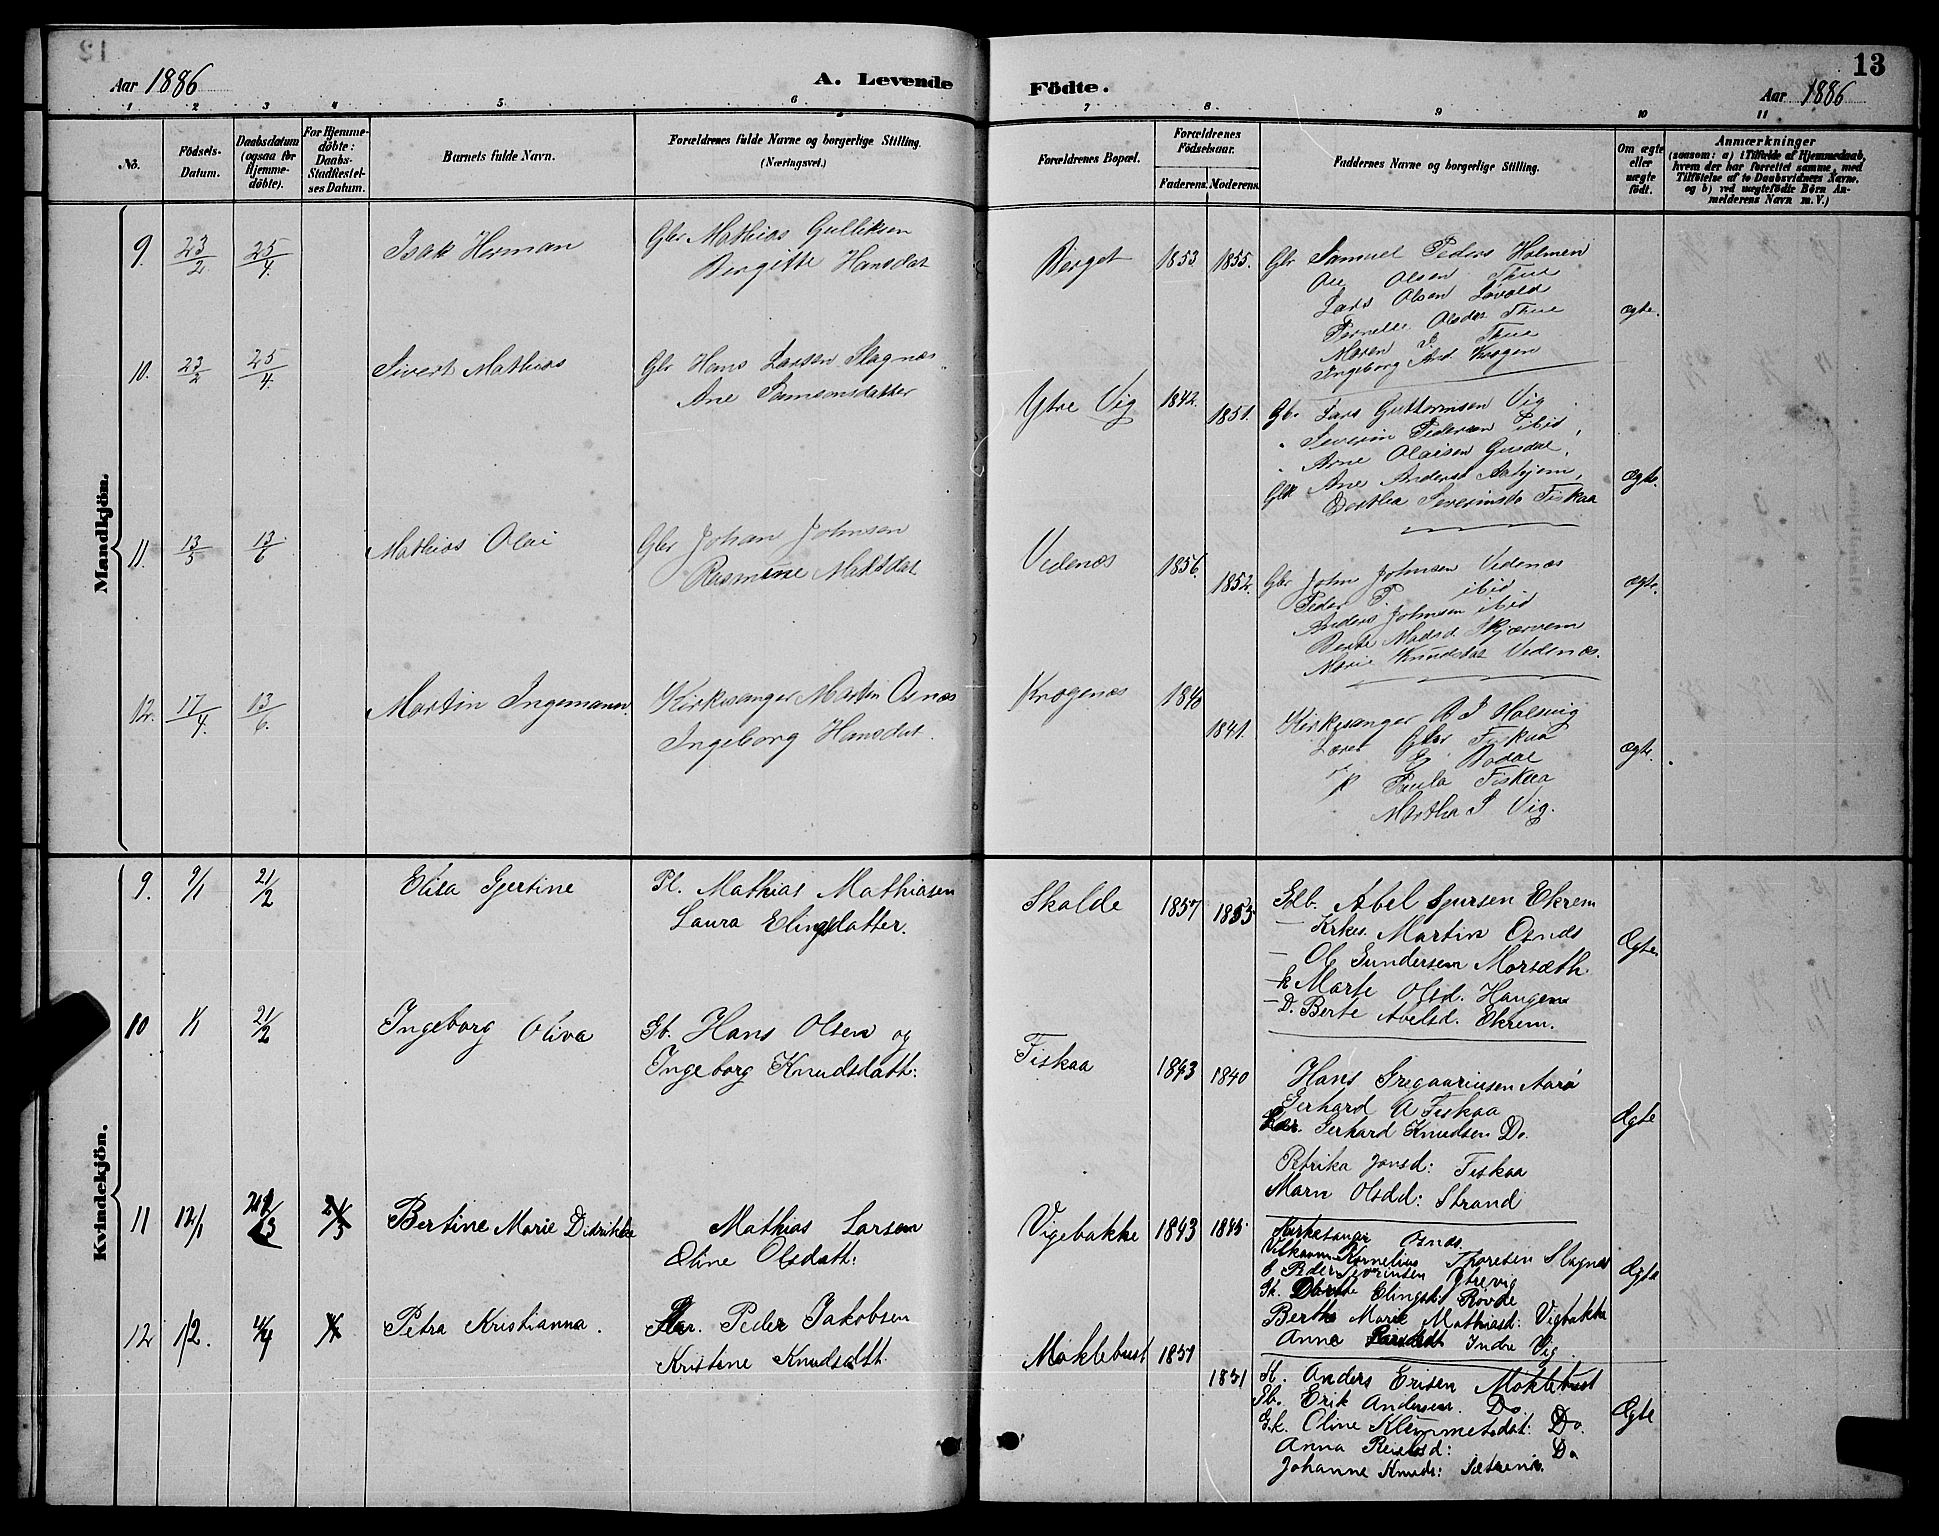 Aar 1886
A. Levende
Födte.
13
Aar 1886
1 2 3 4 5 6 7 8 9 10 11
No.
Födsels-Datum.
Daabsdatum (ogsaa for Hjemme-döbte).
For Hjemme-döbte: Daabs-Stadfæstelses Datum.
Barnets fulde Navn.
Forældrenes fulde Navne og borgerlige Stilling. (Næringsvei.)
Forældrenes Bopæl.
Forældrenes Födselsaar.
Faderens. Moderens.
Faddernes Navne og borgerlige Stilling.
Om ægte eller uægte födt.
Anmærkninger
(saasom: a) i Tilfælde af Hjemmedaab, hvem der har forrettet samme, med Tilföielse af to Daabsvidners Navne, og b) ved uægtefödte Börn Anmelderens Navn m. V.)
Mandkjön.
9. 23/2 25/4 Isak Herman
Gbr Mathias Gulliksen
Birgitte Hansdat
Berget 1853 1855.
Gbr Samuel Peders Holmen
Ole Olsen Thue
Lars Olsen Løvold
Pernelle Olsdr Thue
Maren P. Thue
Ingeborg And Krogen
ægte.
10. 23/2 25/4. Sivert Mathias
Gbr Hans Larsen Slagnæs
Ane Samsonsdatter
Ytre Vig 1842. 1851.
Gb. Lars Guttormsen Vig
" Severin Pedersen ibid
" Arne Olaisen Gusdal,
Gbk Ane Andersd Aahjem,
Berthea Severinsda Fiskaa
Ægte.
11. 13/5 13/6 Mathias Olai
Gbr Johan Johnsen
Rasmine Matsdat
Vedenæs 1856. 1852.
Gbr John Johnsen Vedenæs
Peder P. ibid
Anders Johnsen ibid
Berte Madsd Skjærvem
Marie Knudsdat Vedenæs.
ægte.
12. 17/4. 13/6. Martin Ingemann.
Kirkesanger Martin Osnæs
Ingeborg Hansdat.
Krogenæs 1840 1841.
Kirkesanger R J Halsvig
Lærer Gbr Fiskaa
E. Dodal
Paula Fiskaa
Martha P Vig.
Ægte.
Kvindekjön.
9. 9/1 21/2 Elisa Gjertine
Pl. Mathias Mathiasen
Laura Elingsdatter.
Skolde 1857 1855
Gdb. Abel Sjursen Ekrem
— Kirkes. Martin Osnæs
— Ole Gundersen Morsæth.
— k Marte Olsd. Haugen
— D. Berte Abelsd. Ekrem.
Ægte
10 1/1 21/2 Ingeborg Oliva
Gb. Hans Olsen og
Ingeborg Knudsdatt:
Fiskaa 1843 1840
Hans Gregaariusen Aarö
Gerhard A Fiskaa
Lær. Gerhard Knudsen Do.
Petrika Jonsd: Fiskaa
Marn Olsdd: Strand
Ægte
11 12/1 Bertine Marie Didrikke
Mathias Larsen
Oline Olsdatt:
Vigebakke 1843 1845
Kirkesanger Osnæs
Kornelius Thoresen Slagnæs
Peder Severinsen Ytrevig
Gk. Dorthe Elingsd. Røvde
Berthe Marie Mathiasd: Vigbakke
Anna Indre Vig
Ægte
12 1/2. 4/4 Petra Kristianna.
Peder Jakobsen
Kristine Knudsdatt.
Moklebust 1851 1851
K. Anders Ersen Moklebust
Gb. Erik Andersen. Do.
G.k. Oline Klemmetsdat: Do.
Anna Rasmusd: Do
Johanne Knuds: Sætrenæ.
Ægte